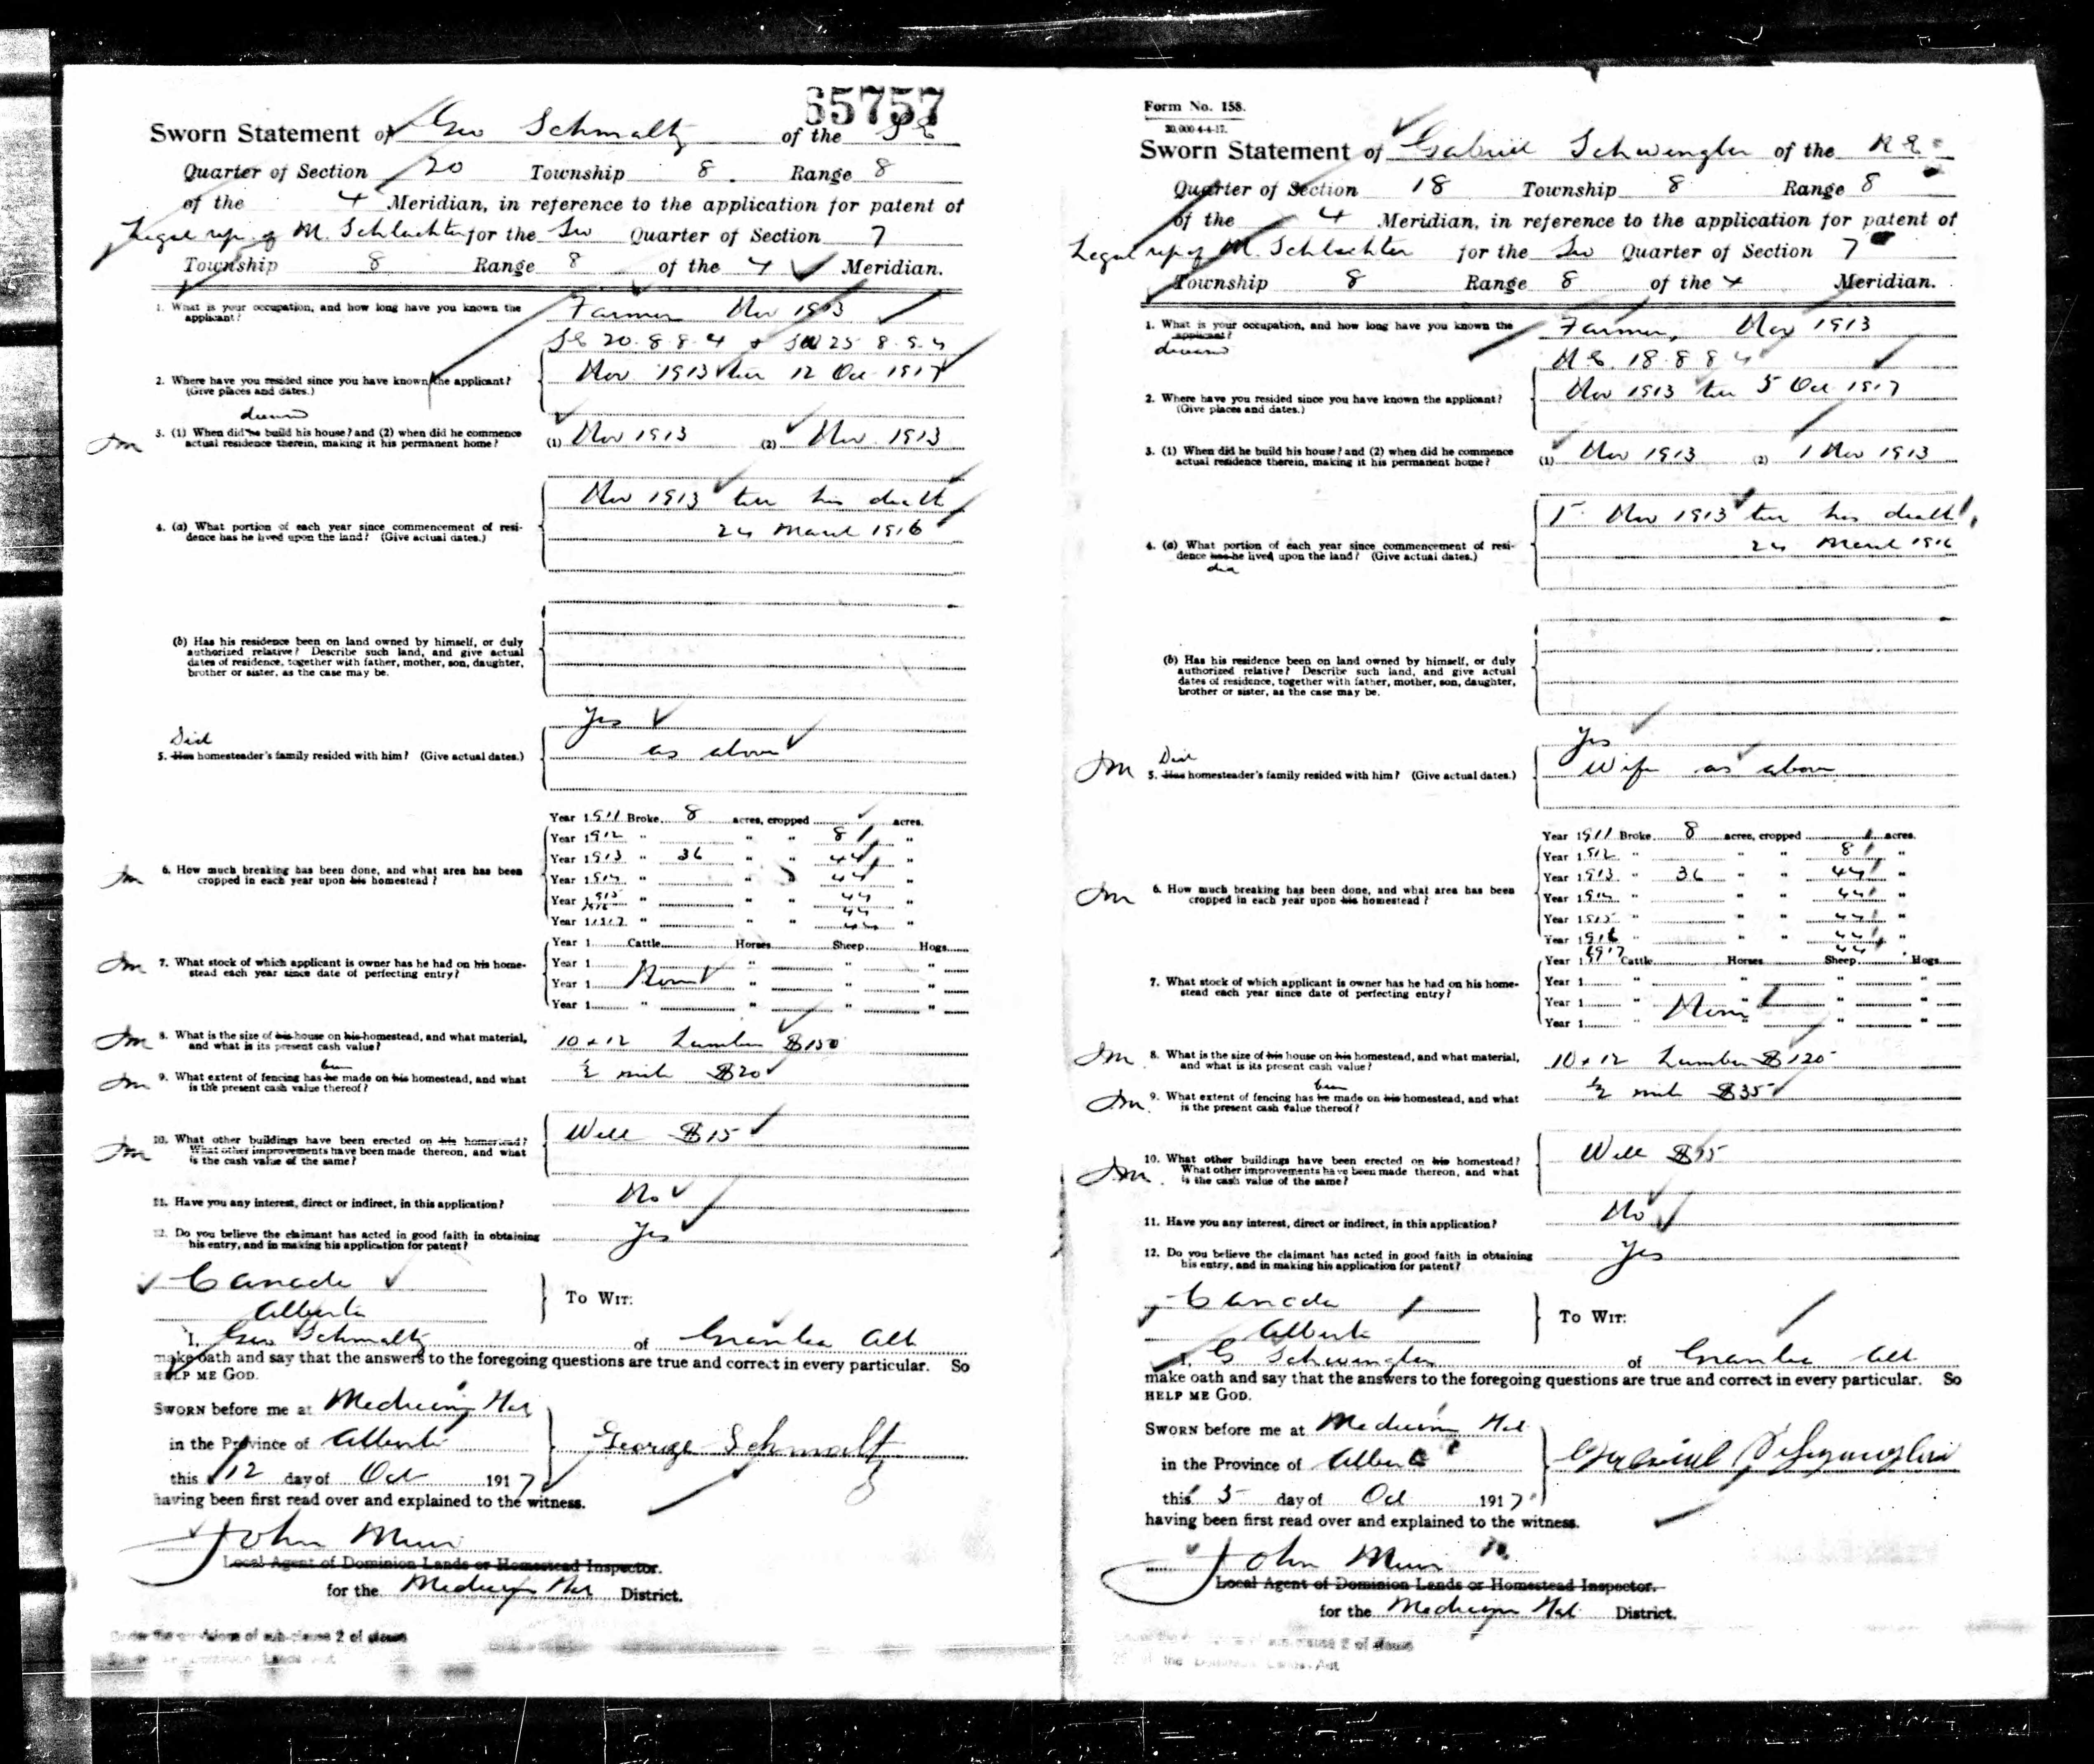 65757
Sworn Statement of Geo Schmaltz of the SE
Quarter of Section 20 Township 8 Range 8
of the 4 Meridian, in reference to the application for patent of
Legal rep. of M. Schlachter for the SW Quarter of Section 7
Township 8 Range 8 of the 4 Meridian.
1. What is your occupation, and how long have you known the
applicant?
Farmer Nov 1913
SE 20. 8. 8. 4 + SW 25. 8. 9. 4
2. Where have you resided since you have known the applicant?
(Give places and dates.)
Nov 1913 till 12 Oct 1917
deceased
3. (1) When did he build his house? and (2) when did he commence
actual residence therein, making it his permanent home?
(1) Nov 1913 (2) Nov. 1913
Jm
4. (a) What portion of each year since commencement of resi-
dence has he lived upon the land? (Give actual dates.)
Nov 1913 till his death
24 March 1916
(b) Has his residence been on land owned by himself, or duly
authorized relative? Describe such land, and give actual
dates of residence, together with father, mother, son, daughter,
brother or sister, as the case may be.
Did
5. Has homesteader's family resided with him? (Give actual dates.)
Yes
as above
Jm
6. How much breaking has been done, and what area has been
cropped in each year upon his homestead?
Year 1911 Broke 8 acres, cropped acres.
Year 1912 " " " 8 "
Year 1913 " 36 " " 44 "
Year 1914 " " " 44 "
Year 1915 " " " 44 "
1916 44
Year 1917 " " " 44 "
Jm
7. What stock of which applicant is owner has he had on his home-
stead each year since date of perfecting entry?
Year 1 Cattle Horses Sheep Hogs
Year 1 " " "
Year 1 None " " "
Year 1 " " " "
Jm
8. What is the size of his house on his homestead, and what material,
and what is its present cash value?
10 x 12 Lumber $150
Jm
been
9. What extent of fencing has he made on his homestead, and what
is the present cash value thereof?
½ mile $20
Jm
10. What other buildings have been erected on his homestead?
What other improvements have been made thereon, and what
is the cash value of the same?
Well $15
11. Have you any interest, direct or indirect, in this application?
No
12. Do you believe the claimant has acted in good faith in obtaining
his entry, and in making his application for patent?
Yes
Canada
Alberta
To Wit:
I, Geo Schmaltz of Granlea Alb
make oath and say that the answers to the foregoing questions are true and correct in every particular. So
HELP ME GOD.
Sworn before me at Medicine Hat
in the Province of Alberta
this 12 day of Oct 1917
George Schmaltz
having been first read over and explained to the witness.
John Muir
Local Agent of Dominion Lands or Homestead Inspector.
for the Medicine Hat District.
Under the provisions of sub-clause 2 of clause
Form No. 158.
30,000 4-4-17.
Sworn Statement of Gabriel Schwengler of the NE
Quarter of Section 18 Township 8 Range 8
of the 4 Meridian, in reference to the application for patent of
Legal rep of M. Schlachter for the SW Quarter of Section 7
Township 8 Range 8 of the 4 Meridian.
1. What is your occupation, and how long have you known the
applicant?
deceased
Farmer, Nov 1913
NE. 18. 8 8 4
2. Where have you resided since you have known the applicant?
(Give places and dates.)
Nov 1913 till 5 Oct 1917
3. (1) When did he build his house? and (2) when did he commence
actual residence therein, making it his permanent home?
(1) Nov 1913 (2) 1 Nov 1913
4. (a) What portion of each year since commencement of resi-
dence has he lived upon the land? (Give actual dates.)
did
1 Nov 1913 till his death
24 March 1916
(b) Has his residence been on land owned by himself, or duly
authorized relative? Describe such land, and give actual
dates of residence, together with father, mother, son, daughter,
brother or sister, as the case may be.
Did
Jm
5. Has homesteader's family resided with him? (Give actual dates.)
Yes
Wife as above
Jm
6. How much breaking has been done, and what area has been
cropped in each year upon his homestead?
Year 1911 Broke 8 acres, cropped acres.
Year 1912 " " " 8 "
Year 1913 " 36 " " 44 "
Year 1914 " " " 44 "
Year 1915 " " " 44 "
Year 1916 " " 44 "
1917 44
7. What stock of which applicant is owner has he had on his home-
stead each year since date of perfecting entry?
Year 1 Cattle Horses Sheep Hogs
Year 1 " " " "
Year 1 " None " " "
Year 1 " " " "
Jm
8. What is the size of his house on his homestead, and what material,
and what is its present cash value?
10 x 12 Lumber $125
been
Jm
9. What extent of fencing has he made on his homestead, and what
is the present cash value thereof?
½ mile $35
Jm
10. What other buildings have been erected on his homestead?
What other improvements have been made thereon, and what
is the cash value of the same?
Well $15
11. Have you any interest, direct or indirect, in this application?
No
12. Do you believe the claimant has acted in good faith in obtaining
his entry, and in making his application for patent?
Yes
Canada
Alberta
To Wit:
I, G Schwengler of Granlea Alb
make oath and say that the answers to the foregoing questions are true and correct in every particular. So
HELP ME GOD.
Sworn before me at Medicine Hat
in the Province of Alberta
this 5 day of Oct 1917
Gabriel
having been first read over and explained to the witness.
John Muir
Local Agent of Dominion Lands or Homestead Inspector.
for the Medicine Hat District.
sub-clause 2 of clause
of the Dominion Lands Act